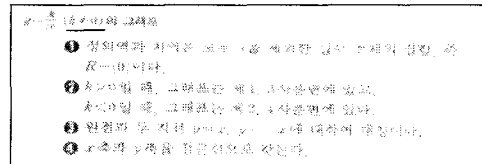 y=k/x (k≠0)의 그래프
❶ 정의역과 치역은 모두 0을 제외한 실수 전체의 집합, 즉
R-{0}이다.
❷ k>0일 때, 그래프는 제1, 3사분면에 있고,
k<0일 때, 그래프는 제2, 4사분면에 있다.
❸ 원점과 두 직선 y=x, y=-x에 대하여 대칭이다.
❹ x축과 y축을 점근선으로 갖는다.